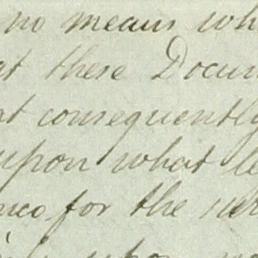 no means wh
at these Docum
nt consequently
upon what le
for the
upon